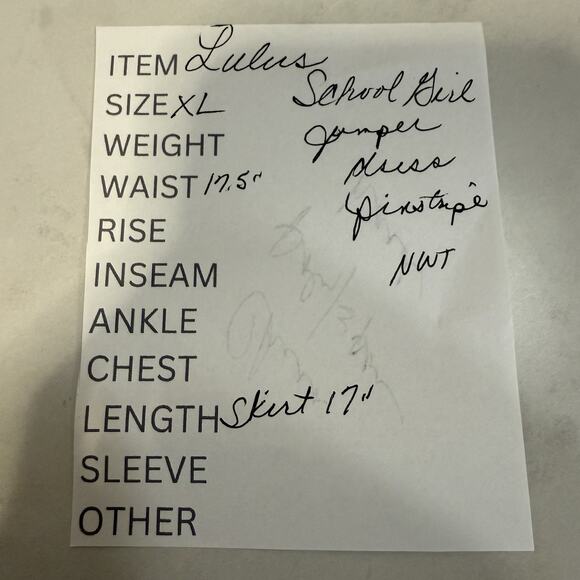 ITEM Lulus
SIZE XL School Girl
WEIGHT Jumper
WAIST 17.5" dress
RISE pinstripe
INSEAM NWT
ANKLE
CHEST
LENGTH Skirt 17"
SLEEVE
OTHER